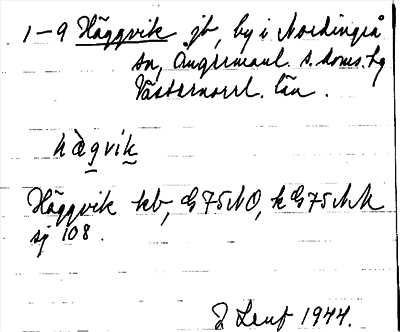 1-9 Häggvik jb, by i Nordingrå
sn, Ångermanl. s. doms. hg
Västernorrl. län.
hàgvik
Häggvik kb, G75NO, k G75NN
sj 108.
J Lenf 1944.